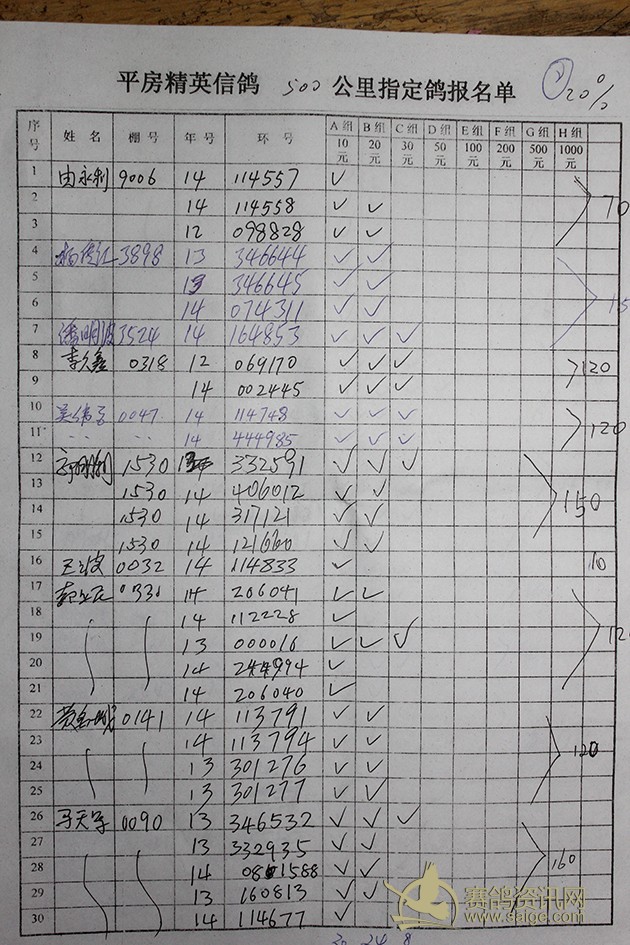 平房精英信鸽 500 公里指定鸽报名单 20%
序号 姓 名 棚 号 年 号 环 号 A 组 10元 B 组 20元 C 组 30元 D 组 50元 E 组 100元 F 组 200元 G 组 500元 H 组 1000元
1 由永利 9006 14 114557 ✓
2 14 114558 ✓ ✓ 70
3 12 098828 ✓ ✓
4 3898 13 346644 ✓ ✓
5 13 346645 ✓ ✓
6 14 074311 ✓ ✓
7 3524 14 164853 ✓ ✓ ✓
8 李久鑫 0318 12 069170 ✓ ✓ ✓ 120
9 14 002445 ✓ ✓ ✓
10 0047 14 114748 ✓ ✓ ✓ 120
11 14 444985 ✓ ✓ ✓
12 1530 332591 ✓ ✓ ✓
13 1530 14 406012 ✓ ✓ 150
14 1530 14 317121 ✓ ✓
15 1530 14 121660 ✓ ✓
16 王波 0032 14 114833 ✓ 10
17 0330 14 206041 ✓ ✓
18 14 112228 ✓
19 13 000016 ✓ ✓ ✓
20 14 244994 ✓
21 14 206040 ✓
22 0141 14 113791 ✓ ✓
23 14 113794 ✓ ✓ 120
24 13 301276 ✓ ✓
25 13 301277 ✓ ✓
26 0090 13 346532 ✓ ✓ ✓
27 13 332935 ✓ ✓ 160
28 14 1588 ✓ ✓
29 13 160813 ✓ ✓
30 14 114677 ✓
赛鸽资讯网
www.saige.com
30 24 8